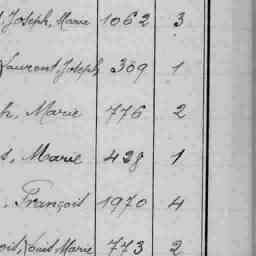 , Joseph, Marie 1062 3
Laurent Joseph 309 1
h, Marie 776 2
s, Marie 428 1
, François 1970 4
ois, Louis Marie 773 2